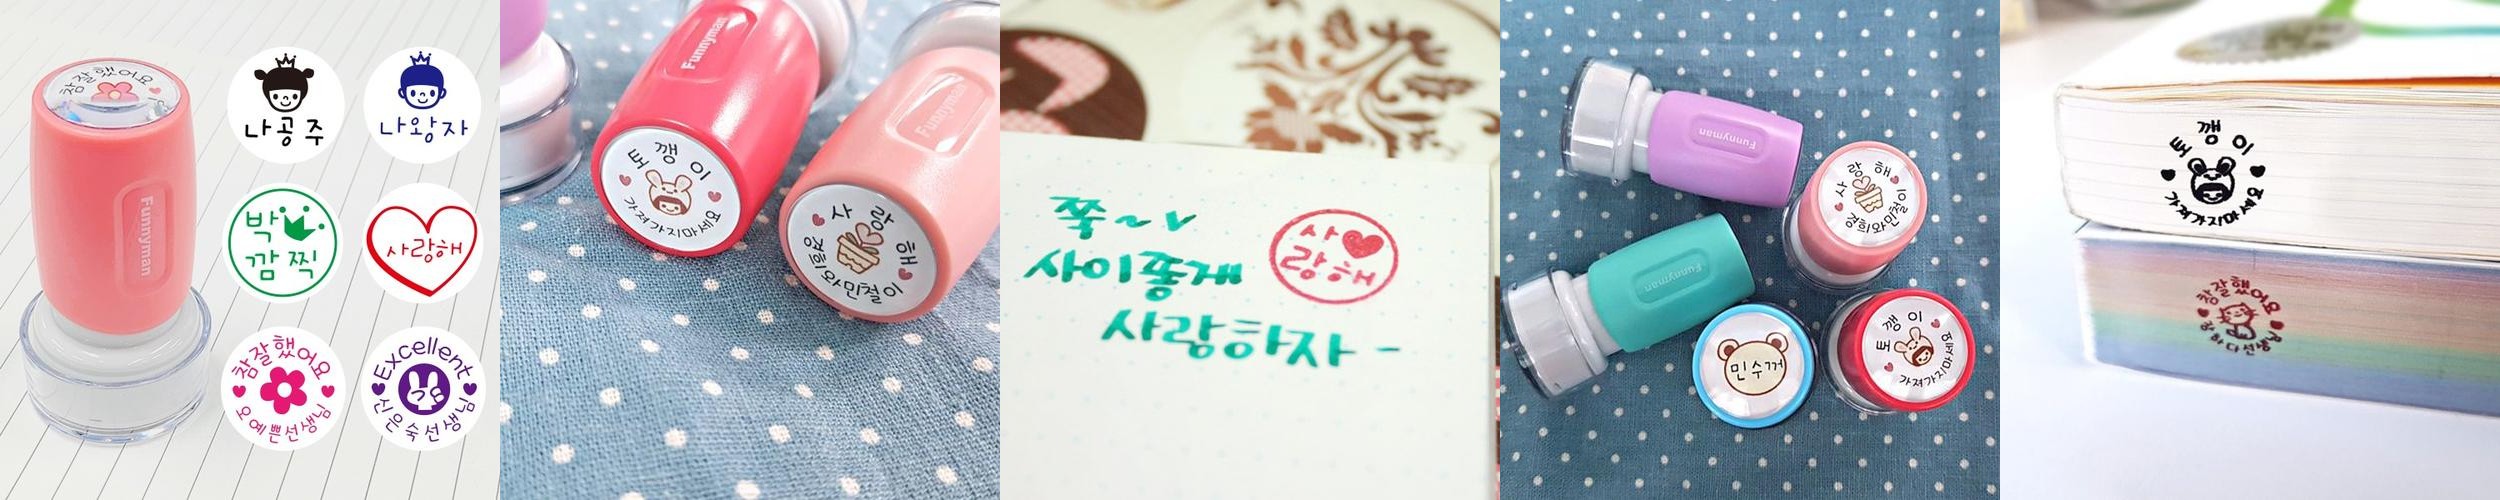 참잘했어요
Funnyman
나공주
나왕자
박
깜찍
사랑해
참잘했어요
오예쁜선생님
Excellent
신은숙선생님
Funnyman
깽이
가져가지마세요
Funnyman
사랑해
경희와민철이
쭉~
사이좋게
사랑하자-
사
랑해
Funnyman
Funnyman
사랑해
경희와민철이
민수꺼
깽이
가져가지마세요
토깽이
가져가지마세요
참잘했어요
선생님